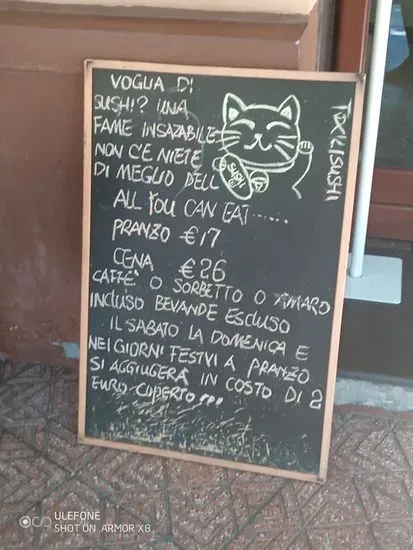 VOGLIA DI
SUSHI? UNA
FAME INSAZABILE
NON C'E NIETE
DI MEGLIO DELL
ALL YOU CAN EAT......
PRANZO €17
CENA €26
CAFFE' O SORBETTO O AMARO
INCLUSO BEVANDE ESCLUSO
IL SABATO LA DOMENICA E
NEI GIORNI FESTVI A PRANZO
SI AGGIUGERÀ IN COSTO DI 2
EURO COPERTO...
SUSHI
ULEFONE
SHOT ON ARMOR X8